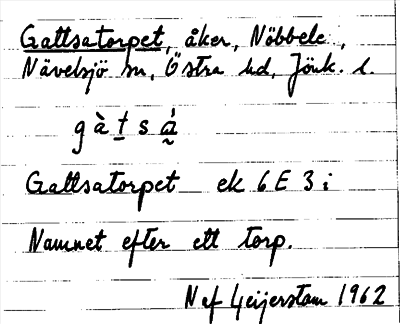 Gattsatorpet, åker, Nöbbele,
Nävelsjö sn, Östra hd, Jönk. l.
g à t s á̰
Gattsatorpet ek 6E 3i
Namnet efter ett torp.
N af Geijerstam 1962